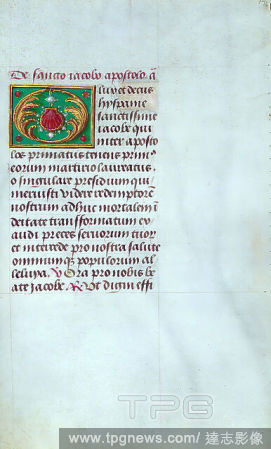 De sancto iacobo apostolo ā
lux et decus
hyspanie
sanctissime
iacobe qui
inter aposto
los primatus tenens prim⁹
eorum martirio laureatus.
o singulare presidium qui
meruisti videre redemptorē
nostrum adhuc mortalem ī
deitate transformatum ex
audi preces seruorum tuor
et intercede pro nostra salute
omniumqȝ populorum al
leluya. V Ora pro nobis be
ate jacobe. R Vt digni effi
TPG
www.tpgnews.com / 達志影像